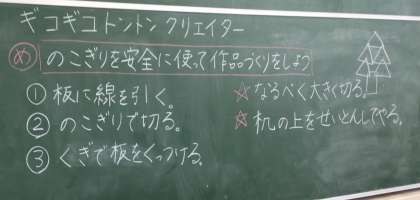 ギコギコトントン クリエイター
め のこぎりを安全に使って作品づくりをしよう
① 板に線を引く。
② のこぎりで切る。
③ くぎで板をくっつける。
☆ なるべく大きく切る。
☆ 机の上をせいとんしてやる。